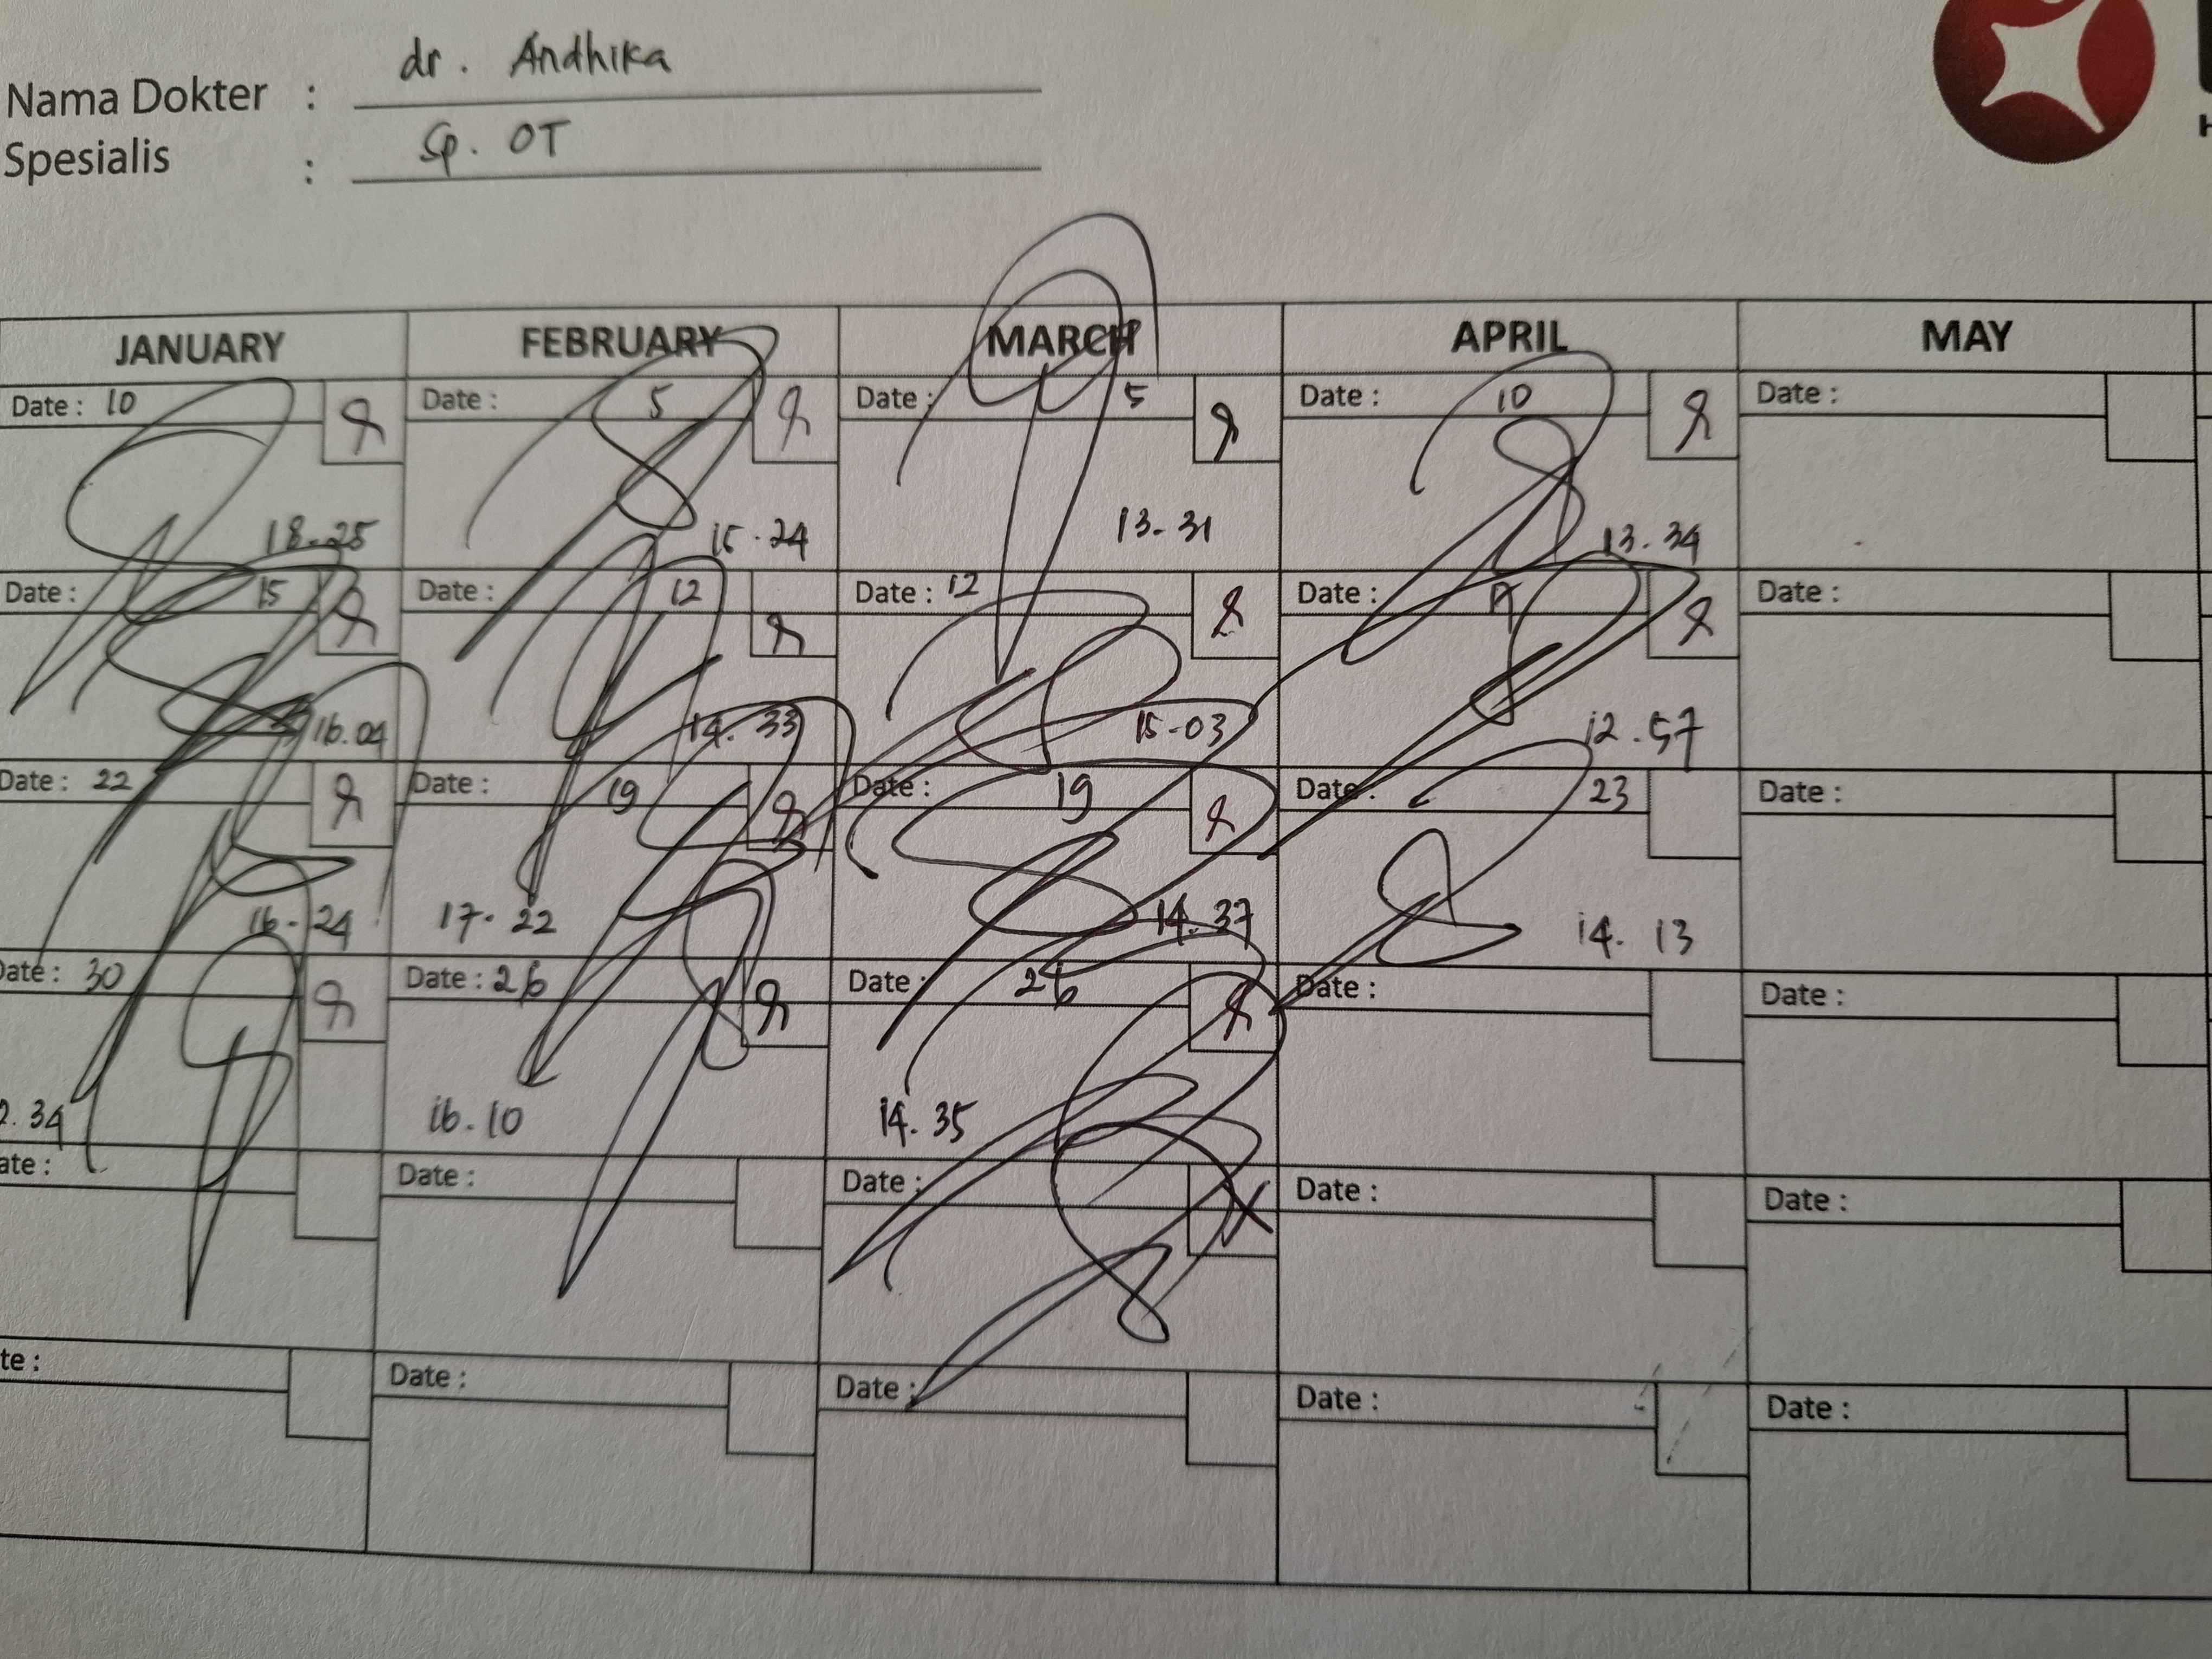 Nama Dokter : dr. Andhika
Spesialis : Sp. OT
JANUARY FEBRUARY MARCH APRIL MAY
Date : 10 Date : 5 Date : 5 Date : 10 Date :
18.25 15.24 13.31 13.34
Date : 15 Date : 12 Date : 12 Date : Date :
16.04 14.33 15.03 12.57
Date : 22 Date : 19 Date : 19 Date : 23 Date :
16.24 17.22 14.37 14.13
Date : 30 Date : 26 Date : 26 Date : Date :
2.34 16.10 14.35
ate : Date : Date : Date : Date :
te : Date : Date : Date : Date :